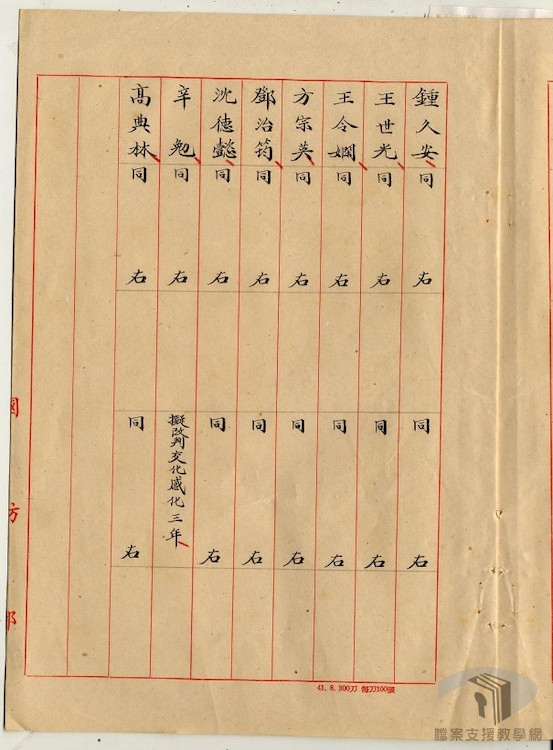 鍾久安 同右 同右
王世光 同右 同右
王令嫻 同右 同右
方宗英 同右 同右
鄧治筠 同右 同右
沈德懿 同右 同右
辛勉 同右 擬改判交化感化三年
高典林 同右 同右
國防部
43. 8. 300刀 每刀100張
檔案支援教學網